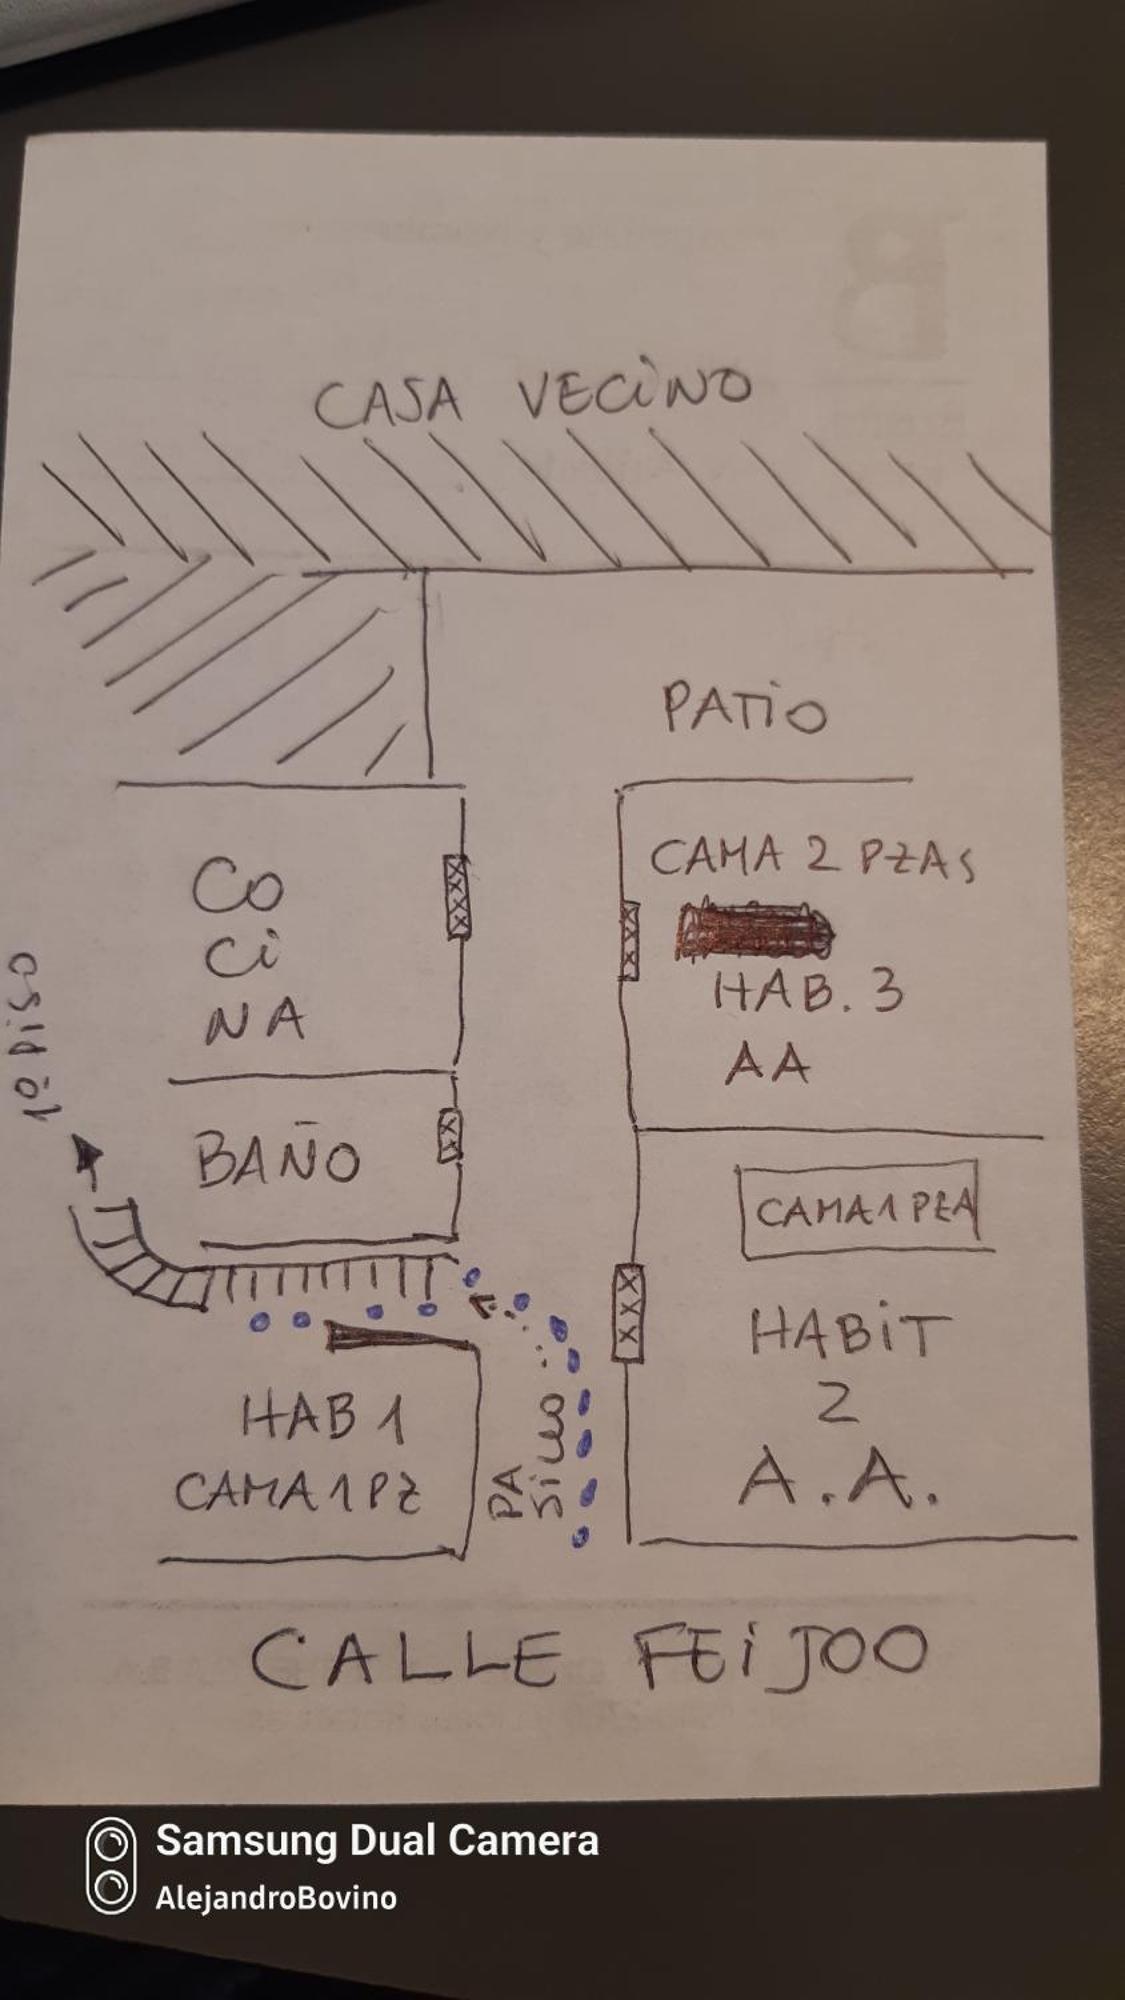 CASA VECINO
PATIO
CO
Ci
NA
CAMA 2 PZAS
HAB. 3
AA
1º PISO
BAÑO
CAMA 1 PZA
HABiT
2
A.A.
HAB 1
CAMA 1 PZ
PA
SiLLO
CALLE FEiJOO
Samsung Dual Camera
AlejandroBovino